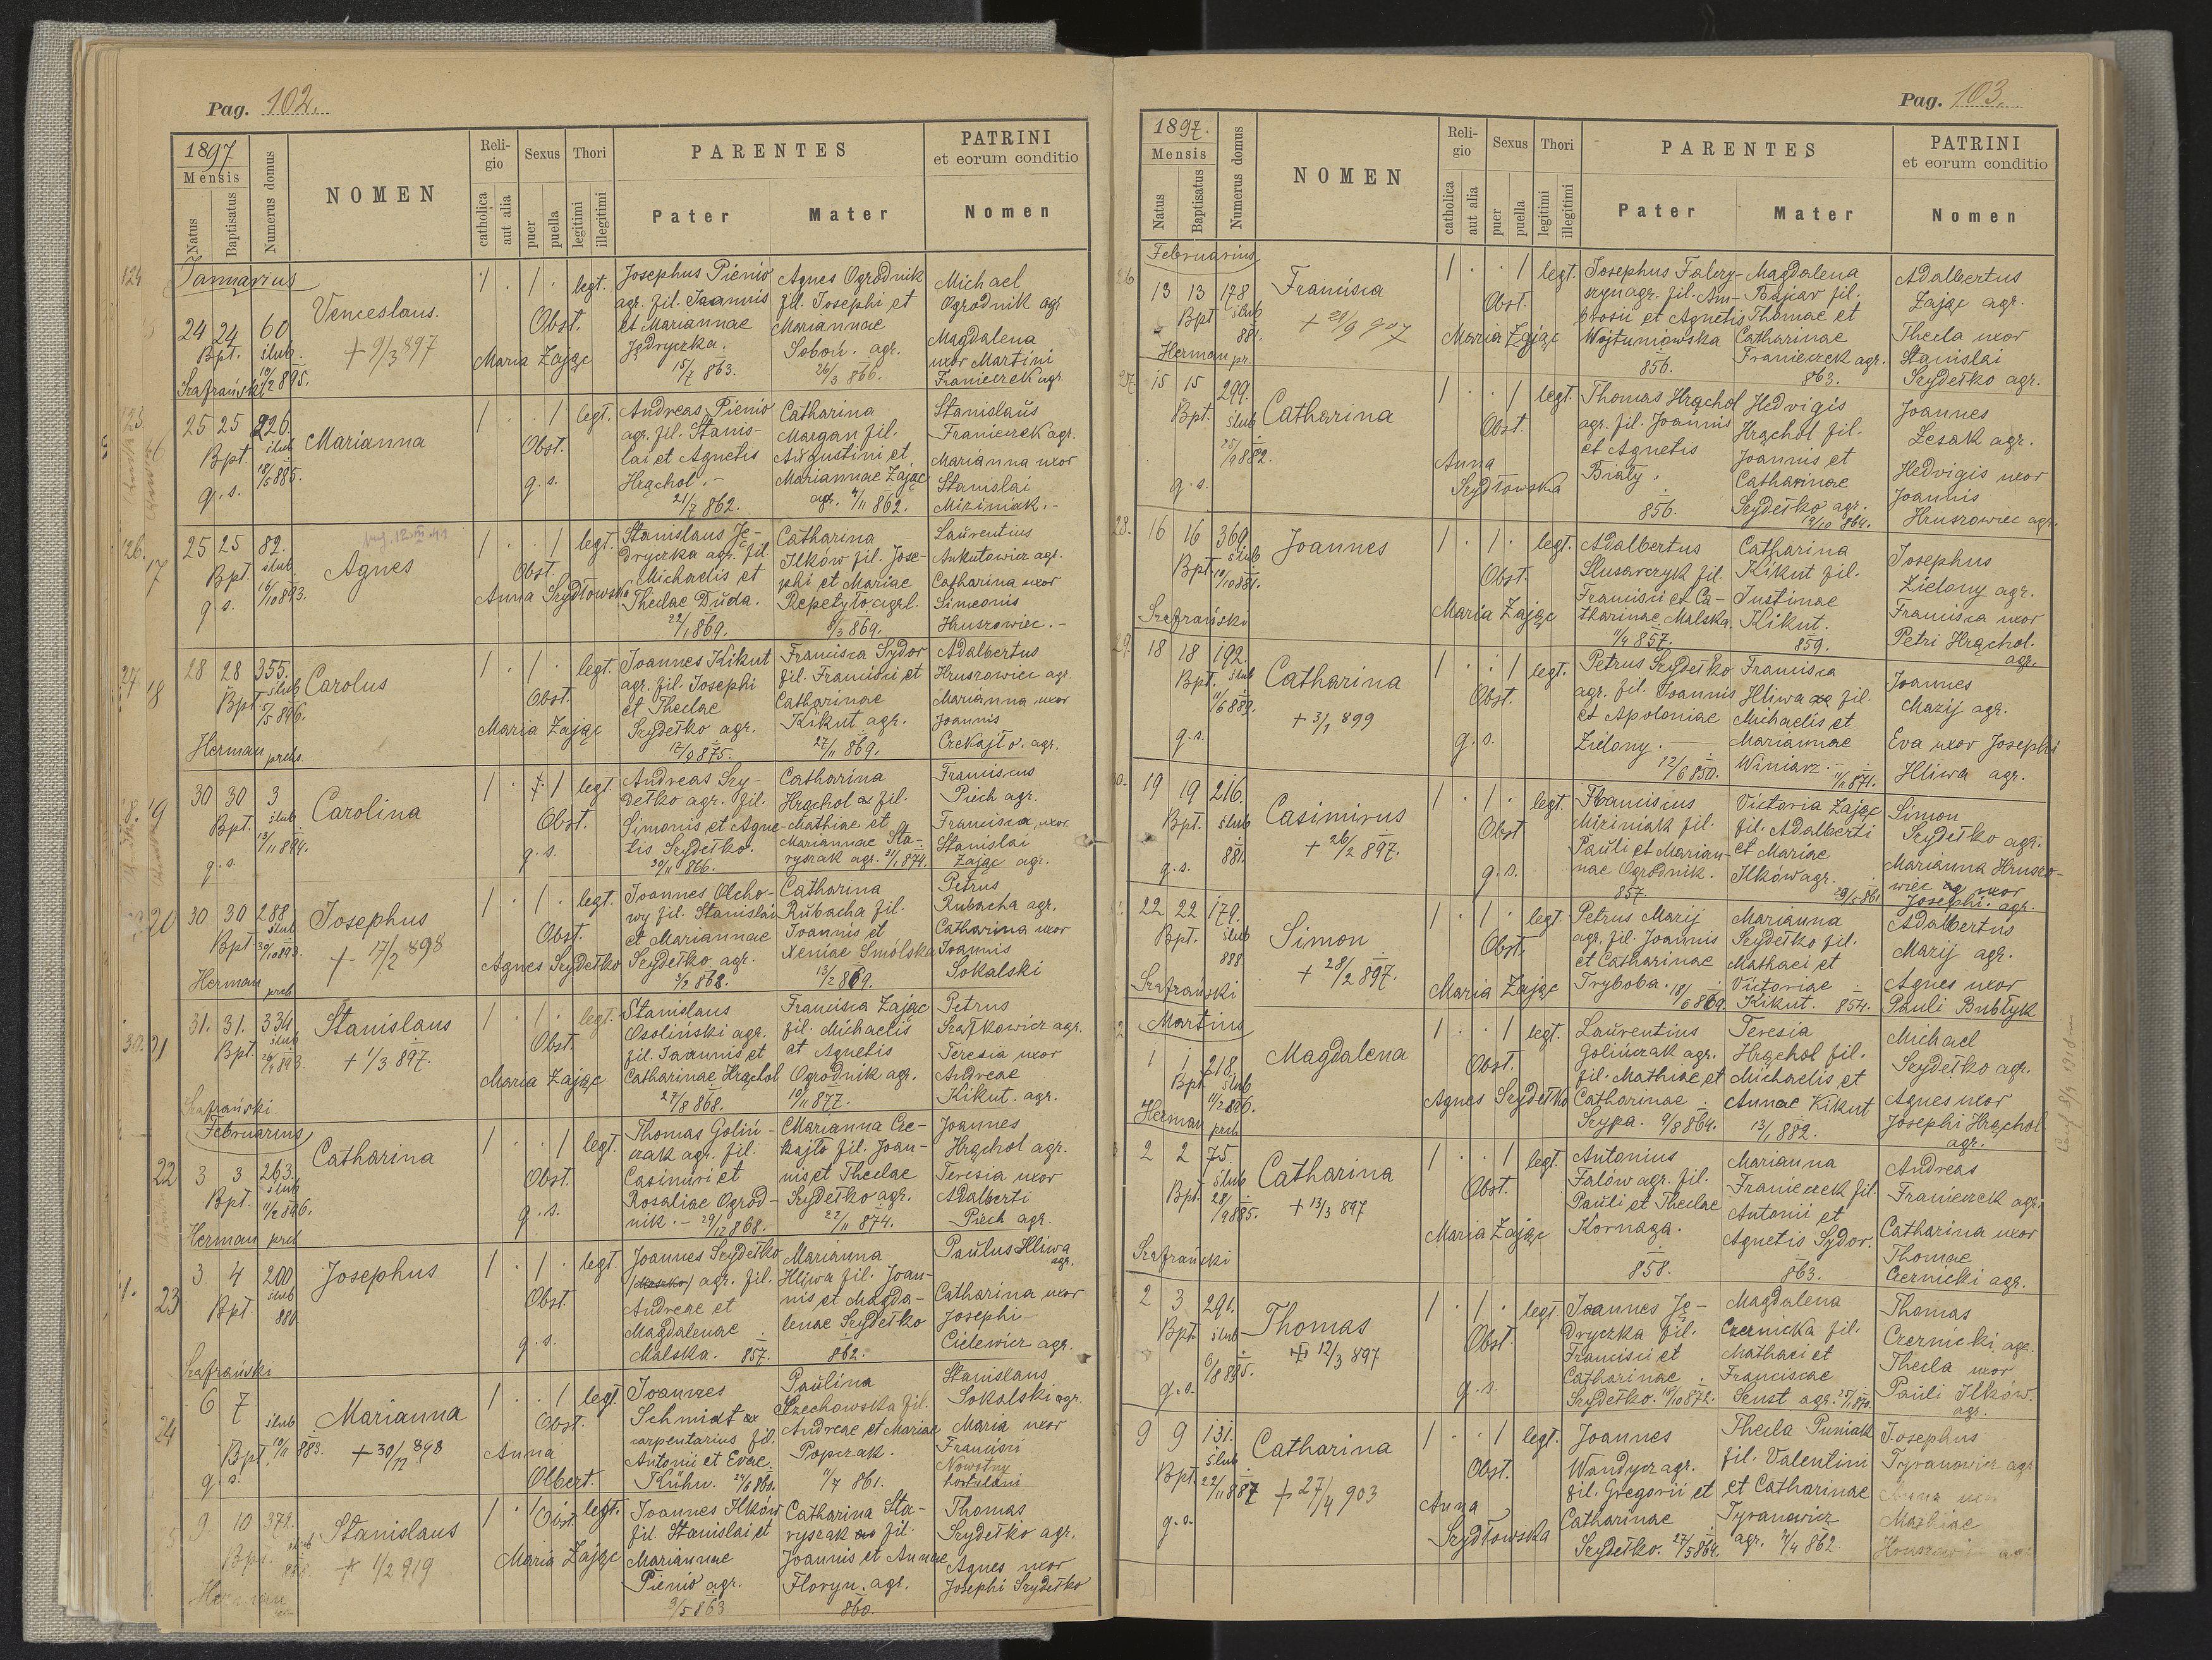 Pag. 102.
1897
Mensis
Natus
Baptisatus
Numerus domus
NOMEN
Religio
catholica
aut alia
Sexus
puer
puella
Thori
legitimi
illegitimi
PARENTES
Pater
Mater
PATRINI
et eorum conditio
Nomen
Januarius
24 24 60
Bpt. ślub
Szafrański 895.
Venceslaus.
+ 9/3 897
1 . 1 . legt.
Obst.
Maria Zając
Josephus Pienio
agr. fil. Joannis
et Mariannae
Jędryczka.
15/7 863.
Agnes Ogrodnik
fil. Josephi et
Mariannae
Soboń. agr.
26/3 866.
Michael
Ogrodnik agr
Magdalena
uxor Martini
Franieczek agr.
25 25 226.
Bpt. ślub
18/5 885.
g. s.
Marianna
1 . . 1 legt.
Obst.
g. s.
Andreas Pienio
agr. fil. Stanis-
lai et Agnetis
Hrąchol. -
21/7 862.
Catharina
Margan fil.
Augustini et
Mariannae Zając
agr. 4/11 862.
Stanislaus
Franieczek agr.
Marianna uxor
Stanislai
Miziniak. -
25 25 82.
Bpt. ślub
16/10 893.
g. s.
Agnes
1 . . 1 legt.
Obst.
Anna Szydłowska
Stanislaus Ję-
dryczka agr. fil
Michaelis et
Theclae Duda.
22/1 869.
Catharina
Ilków fil. Jose-
phi et Mariae
Repetyło agrl.
8/3 869.
Laurentius
Ankutowicz agr.
Catharina uxor
Simeonis
Hruszowiec. -
28 28 355.
Bpt. ślub
5/5 896.
Herman prob.
Carolus
1 . 1 . legt.
Obst.
Maria Zając
Joannes Kikut
agr. fil. Josephi
et Theclae
Szydełko agr.
12/9 875.
Francisca Sydor
fil. Francisci et
Catharinae
Kikut agr.
27/11 869.
Adalbertus
Hruszowiec agr.
Marianna uxor
Joannis
Czekajło. agr.
30 30 3
Bpt. ślub
13/11 894.
g. s.
Carolina
1 . . 1 legt.
Obst.
g. s.
Andreas Szy-
dełko agr. fil.
Simonis et Agne-
tis Szydełko.
30/11 866.
Catharina
Hrąchol fil.
Mathiae et
Mariannae Sta-
ryszak agr. 31/1 874.
Franciscus
Piech agr.
Francisca uxor
Stanislai
Zając agr.
30 30 288
Bpt. ślub
30/10 893.
Herman prob
Josephus
+ 17/2 898
1 . 1 . legt.
Obst.
Agnes Szydełko
Joannes Olcho-
wy fil. Stanislai
et Mariannae
Szydełko agr.
3/2 868.
Catharina
Rubacha fil.
Joannis et
Xeniae Smolska
13/2 869.
Petrus
Rubacha agr.
Catharina uxor
Joannis
Sokalski
31. 31. 334
Bpt. ślub
893.
Szafrański
Stanislaus
+ 1/3 897.
1 . 1 . legt.
Obst.
Maria Zając
Stanislaus
Osoliński agr.
fil. Joannis et
Catharinae Hrąchol
27/8 868.
Francisca Zając
fil. Michaelis
et Agnetis
Ogrodnik agr.
10/11 877.
Petrus
Szajkowicz agr.
Teresia uxor
Andreae
Kikut. agr.
Februarius
3 3 263.
Bpt. ślub
11/2 896.
Herman prob
Catharina
1 . . 1 legt.
Obst.
g. s.
Thomas Goliń-
czak agr. fil.
Casimiri et
Rosaliae Ogrod-
nik. - 29/12 868.
Marianna Cze-
kajło fil. Joan-
nis et Theclae
Szydełko agr.
22/11 874.
Joannes
Hrąchol agr.
Teresia uxor
Adalberti
Piech agr.
3 4 200
Bpt. ślub
880
Szafrański
Josephus
1 . 1 . legt.
Obst.
g. s.
Joannes Szydełko
agr. fil.
Andreae et
Magdalenae
Malska. 857.
Marianna
Hliwa fil. Joan-
nis et Magda-
lenae Szydełko
862.
Paulus Hliwa
agr.
Catharina uxor
Josephi
Cielewicz agr.
6 7
Bpt. ślub
10/11 883.
g. s.
Marianna
+ 30/12 898
1 . . 1 legt.
Obst.
Anna
Olbert.
Joannes
Schmidt
carpentarius fil.
Antonii et Evae
Kühn. 24/6 860.
Paulina
Szechowska fil.
Andreae et Mariae
Popczak.
11/7 861.
Stanislaus
Sokalski agr.
Maria uxor
Francisci
Nowotny
hortulani
9 10 372.
Bpt. ślub
Herman
Stanislaus
+ 1/2 919
1 . 1 . legt.
Obst.
Maria Zając
Joannes Ilków
fil. Stanislai et
Mariannae
Pienio agr.
9/5 863
Catharina Sta-
ryszak fil.
Joannis et Annae
Floryn. agr.
860.
Thomas
Szydełko agr.
Agnes uxor
Josephi Szydełko
Pag. 103.
1897.
Mensis
Natus
Baptisatus
Numerus domus
NOMEN
Religio
catholica
aut alia
Sexus
puer
puella
Thori
legitimi
illegitimi
PARENTES
Pater
Mater
PATRINI
et eorum conditio
Nomen
Februarius
13 13 178
Bpt ślub
881.
Herman pr.
Francisca
+ 21/9 907
1 . . 1 legt.
Obst.
Maria Zając
Josephus Falery-
szyn agr. fil. Am-
brosii et Agnetis
Wojtuniowska
856.
Magdalena
Bajcar fil.
Thomae et
Catharinae
Franieczek agr.
863.
Adalbertus
Zając agr.
Thecla uxor
Stanislai
Szydełko agr.
15 15 299.
Bpt. ślub
25/9 882.
g. s.
Catharina
1 . . 1 legt.
Obst.
Anna
Szydłowska
Thomas Hrąchol
agr. fil. Joannis
et Agnetis
Biały.
856.
Hedvigis
Hrąchol fil.
Joannis et
Catharinae
Szydełko agr.
12/10 864.
Joannes
Lesak agr.
Hedvigis uxor
Joannis
Hruszowiec agr.
28. 16 16 369
Bpt. ślub
10/10 881.
Szafrański
Joannes
1 . 1 . legt.
Obst.
Maria Zając
Adalbertus
Slusarczyk fil.
Francisci et Ca-
tharinae Malska.
7/4 857.
Catharina
Kikut fil.
Justinae
Kikut.
859.
Josephus
Zielony agr.
Francisca uxor
Petri Hrąchol.
agr.
29. 18 18 192.
Bpt. ślub
11/6 889.
g. s.
Catharina
+ 3/1 899
1 . . 1 legt.
Obst.
g. s.
Petrus Szydełko
agr. fil. Joannis
et Apoloniae
Zielony.
12/6 850.
Francisca
Hliwa fil.
Michaelis et
Mariannae
Winiarz. -
11/11 871.
Joannes
Mazij agr.
Eva uxor Josephi
Hliwa agr.
19 19 216.
Bpt. ślub
881.
g. s.
Casimirus
+ 26/2 897.
1 . 1 . legt.
Obst
g. s.
Franciscus
Miziniak fil.
Pauli et Marian-
nae Ogrodnik.
857.
Victoria Zając
fil. Adalberti
et Mariae
Ilków agr.
29/5 861
Simon
Szydełko agr.
Marianna Hruszo-
wiec uxor
Josephi. agr.
22 22 179.
Bpt. ślub
888
Szafrański
Simon
+ 28/2 897.
1 . 1 . legt.
Obst.
Maria Zając
Petrus Mazij
agr. fil. Joannis
et Catharinae
Tryboba. 18/6 869.
Marianna
Szydełko fil.
Mathaei et
Victoriae
Kikut. 854.
Adalbertus
Mazij agr.
Agnes uxor
Pauli Bubłyk
Martius
1 1 218.
Bpt ślub
11/2 896.
Herman prob
Magdalena
1 . . 1 legt.
Obst.
Agnes Szydełko
Laurentius
Golińczak agr.
fil. Mathiae et
Catharinae
Szypa. 9/8 864.
Teresia
Hrąchol fil.
Michaelis et
Annae Kikut
13/1 882.
Michael
Szydełko agr.
Agnes uxor
Josephi Hrąchol
agr.
2 2 75.
Bpt. ślub
28/9 885.
Szafrański
Catharina
+ 13/3 897
1 . . 1 legt.
Obst.
Maria Zając
Antonius
Falów agr. fil.
Pauli et Theclae
Kornaga.
858.
Marianna
Franieczek fil.
Antonii et
Agnetis Sydor.
863.
Andreas
Franieczek agr.
Catharina uxor
Thomae
Czernicki agr.
2 3 291.
Bpt. ślub
6/8 895.
g. s.
Thomas
+ 12/3 897
1 . 1 . legt
Obst.
g. s.
Joannes Ję-
dryczka fil.
Francisci et
Catharinae
Szydełko. 18/10 872.
Magdalena
Czernicka fil.
Mathaei et
Franciscae
Seust agr.
Thomas
Czernicki agr.
Thecla uxor
Pauli Ilków.
agr.
9 9 131.
Bpt. ślub
22/11 887
g. s.
Catharina
+ 27/4 903
1 . . 1 legt.
Obst.
Anna
Szydłowska
Joannes
Wandycz agr.
fil. Gregorii et
Catharinae
Szydełko. 27/5 864.
Thecla Puniak
fil. Valentini
et Catharinae
Tyranowicz
agr. 7/4 862.
Josephus
Tyranowicz agr
Anna uxor
Mathiae